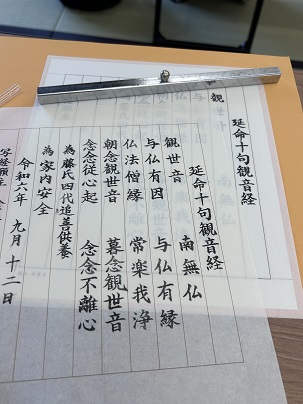 延命十句観音経
観
南無仏
延命十句観音経
観世音 南無仏
与仏有因 与仏有縁
仏法僧縁 常楽我浄
朝念観世音 暮念観世音
念念従心起 念念不離心
為藤氏四代追善供養
為家内安全
令和六年 九月十二日
写経願主